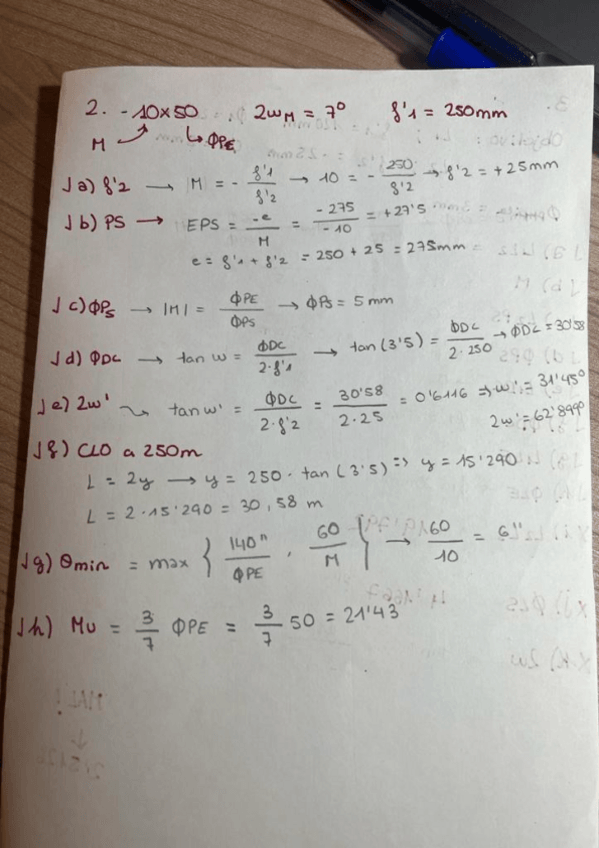 2. -10x50 2ωM = 7° f'1 = 250mm
M ΦPE
√a) f'2 → M = - f'1/f'2 → 10 = - 250/f'2 → f'2 = +25mm
√b) PS → EPS = -e/M = -275/-10 = +27'5
e = f'1 + f'2 = 250 + 25 = 275mm
√c) ΦPS → |M| = ΦPE/ΦPS → ΦPS = 5 mm
√d) ΦDC → tan ω = ΦDC/2·f'1 → tan(3'5) = ΦDC/2·250 → ΦDC = 30'58
√e) 2ω' ↝ tan ω' = ΦDC/2·f'2 = 30'58/2·25 = 0'6116 ⇒ ω' = 31'45°
2ω' = 62'899°
√f) CLO a 250m
L = 2y → y = 250 · tan(3'5) ⇒ y = 15'290
L = 2·15'290 = 30,58 m
√g) θmin = max { 140"/ΦPE , 60/M } → 60/10 = 6"
√h) Mu = 3/7 ΦPE = 3/7 50 = 21'43